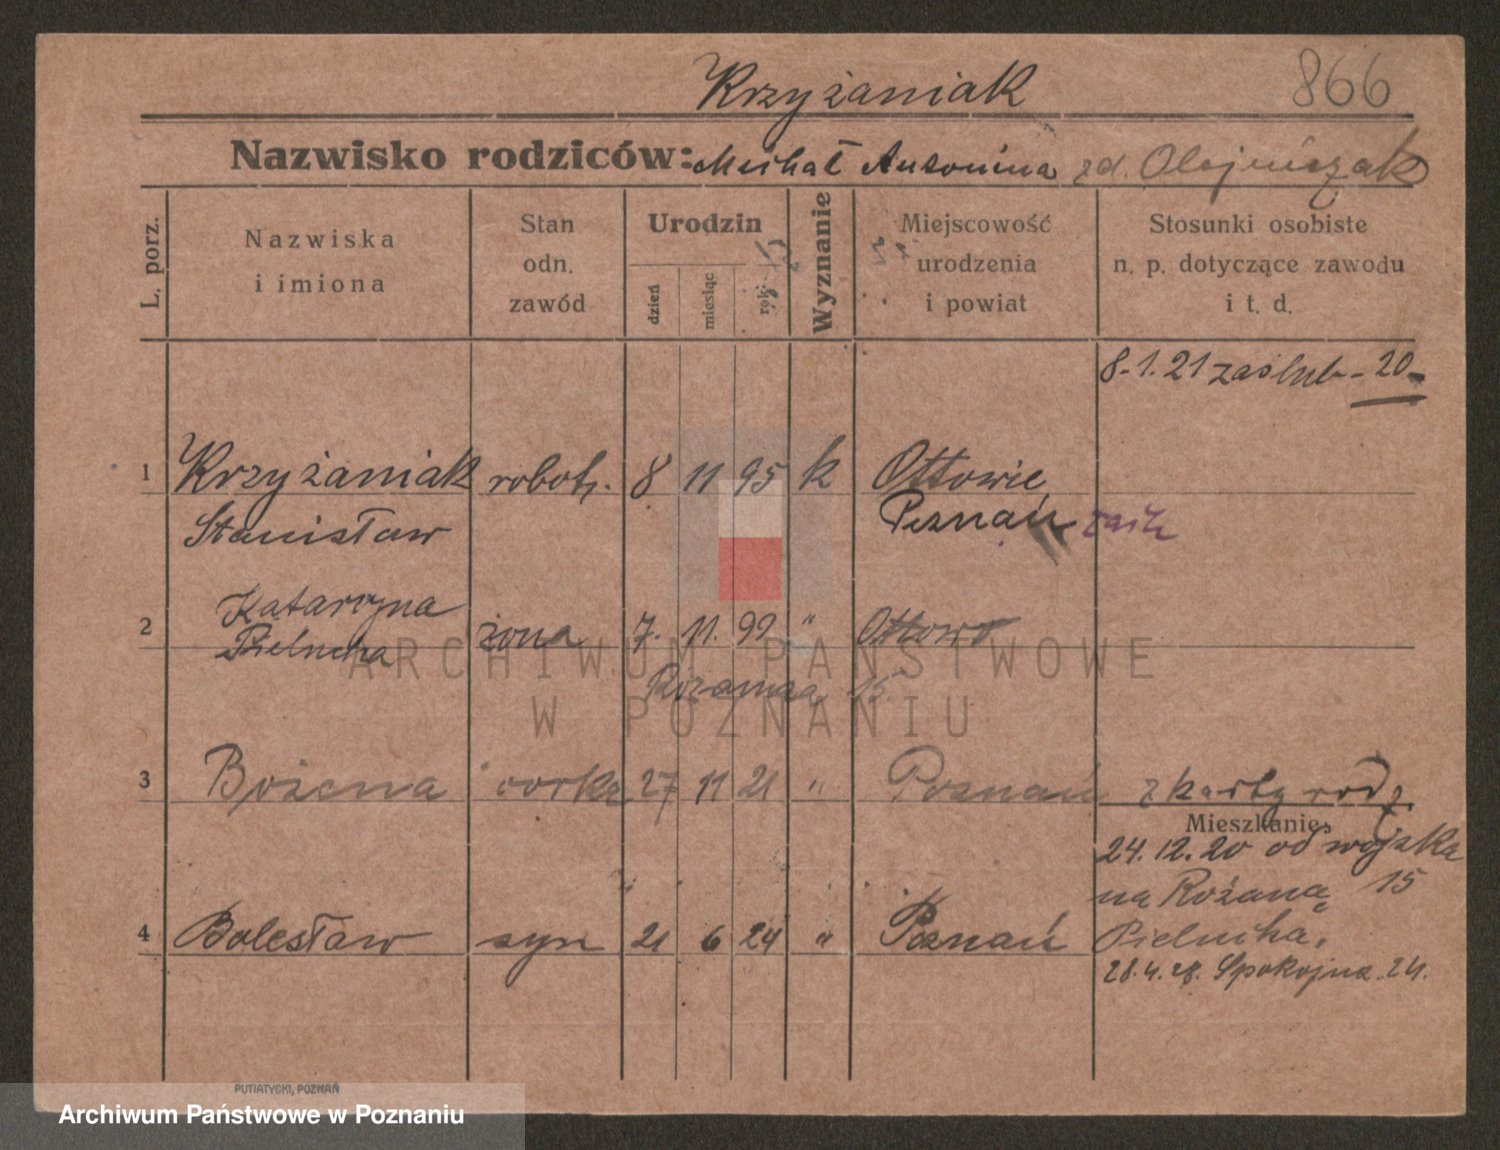 Krzyżaniak 866
Nazwisko rodziców: Michał Antonina zd. Olejniczak
L. porz.
Nazwiska i imiona
Stan odn. zawód
Urodzin
dzień
miesiąc
rok
Wyznanie
Miejscowość urodzenia i powiat
Stosunki osobiste n. p. dotyczące zawodu i t. d.
8-1.21 zaślub - 20-
1 Krzyżaniak robotn. 8 11 95 k Ottowie
Stanisław Poznań
2 Katarzyna żona 7. 11. 99 " Ottowo
Pielucha
Różanna 15
3 Bożena córka 27 11 21 " Poznań z karty rodz.
Mieszkanie:
24.12.20 od wojska
na Różaną 15
4 Bolesław syn 21 6 24 " Poznań Pielucha,
28.4.28. Spokojna 24.
PUTIATYCKI, POZNAŃ
ARCHIWUM PAŃSTWOWE
W POZNANIU
Archiwum Państwowe w Poznaniu